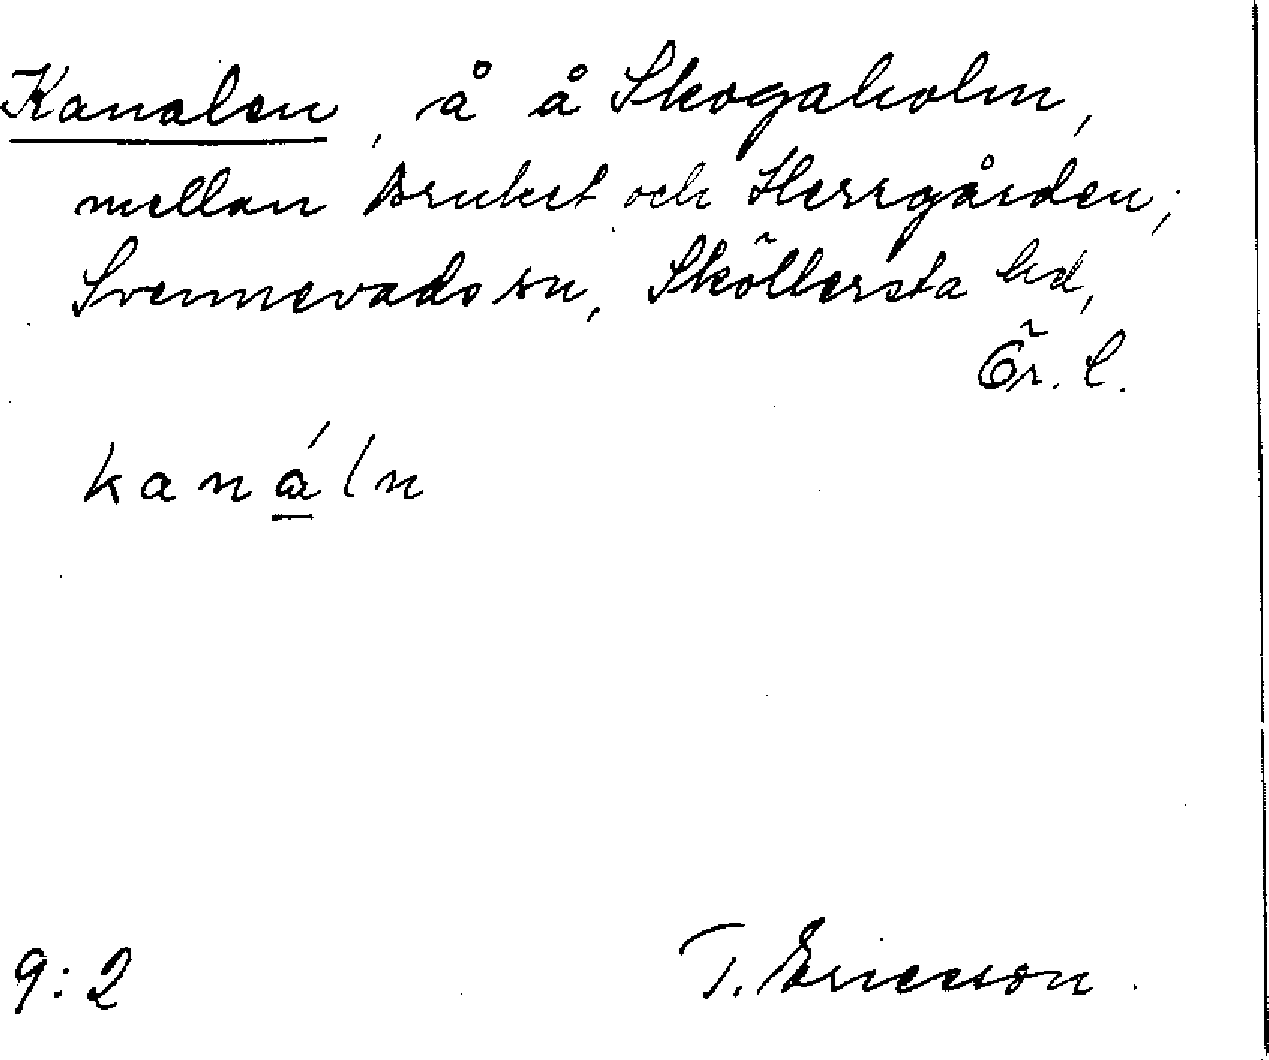 Kanalen, å å Skogaholm,
mellan Bruket och Herrgården;
Svennevads sn, Sköllersta hd,
Ör. l.
kanáln
9:2
T. Ericson